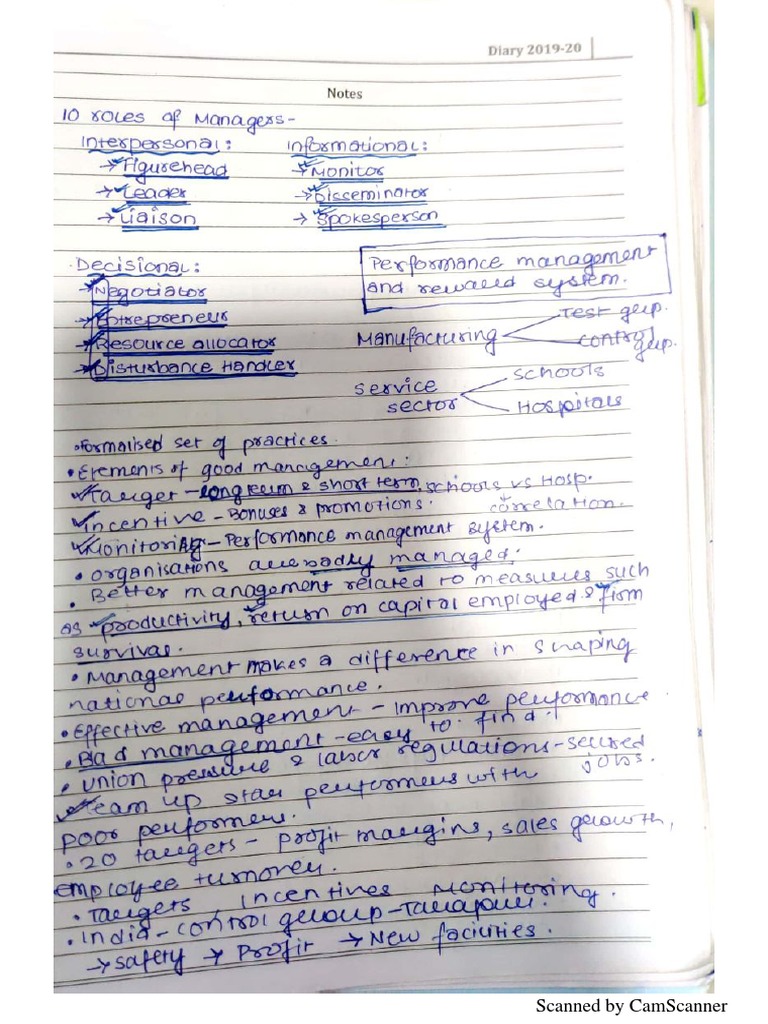 Diary 2019-20
Notes
10 roles of Managers-
Interpersonal:
→ Figurehead
→ Leader
→ Liaison
Informational:
→ Monitor
→ Disseminator
→ Spokesperson
Decisional:
Negotiator
Entrepreneur
Resource allocator
Disturbance Handler
Performance management
and reward system.
Manufacturing
Test grp.
control grp.
Service sector
Schools
Hospitals
• Formalised set of practices.
• Elements of good management:
Target - long term & short term. schools vs Hosp.
Incentive - Bonuses & promotions. correlation.
Monitoring - Performance management system.
• organisations are badly managed.
• Better management related to measures such
as productivity, return on capital employed & firm
survival.
• Management makes a difference in shaping
national performance.
• Effective management - improve performance.
• Bad management - easy to find.
• Union pressure & labor regulations - secured jobs.
Team up star performers with
poor performers.
• 20 targets - profit margins, sales growth,
employee turnover.
• Targets Incentives Monitoring.
• India - control group - Tarapur.
→ safety → Profit → New facilities.
Scanned by CamScanner